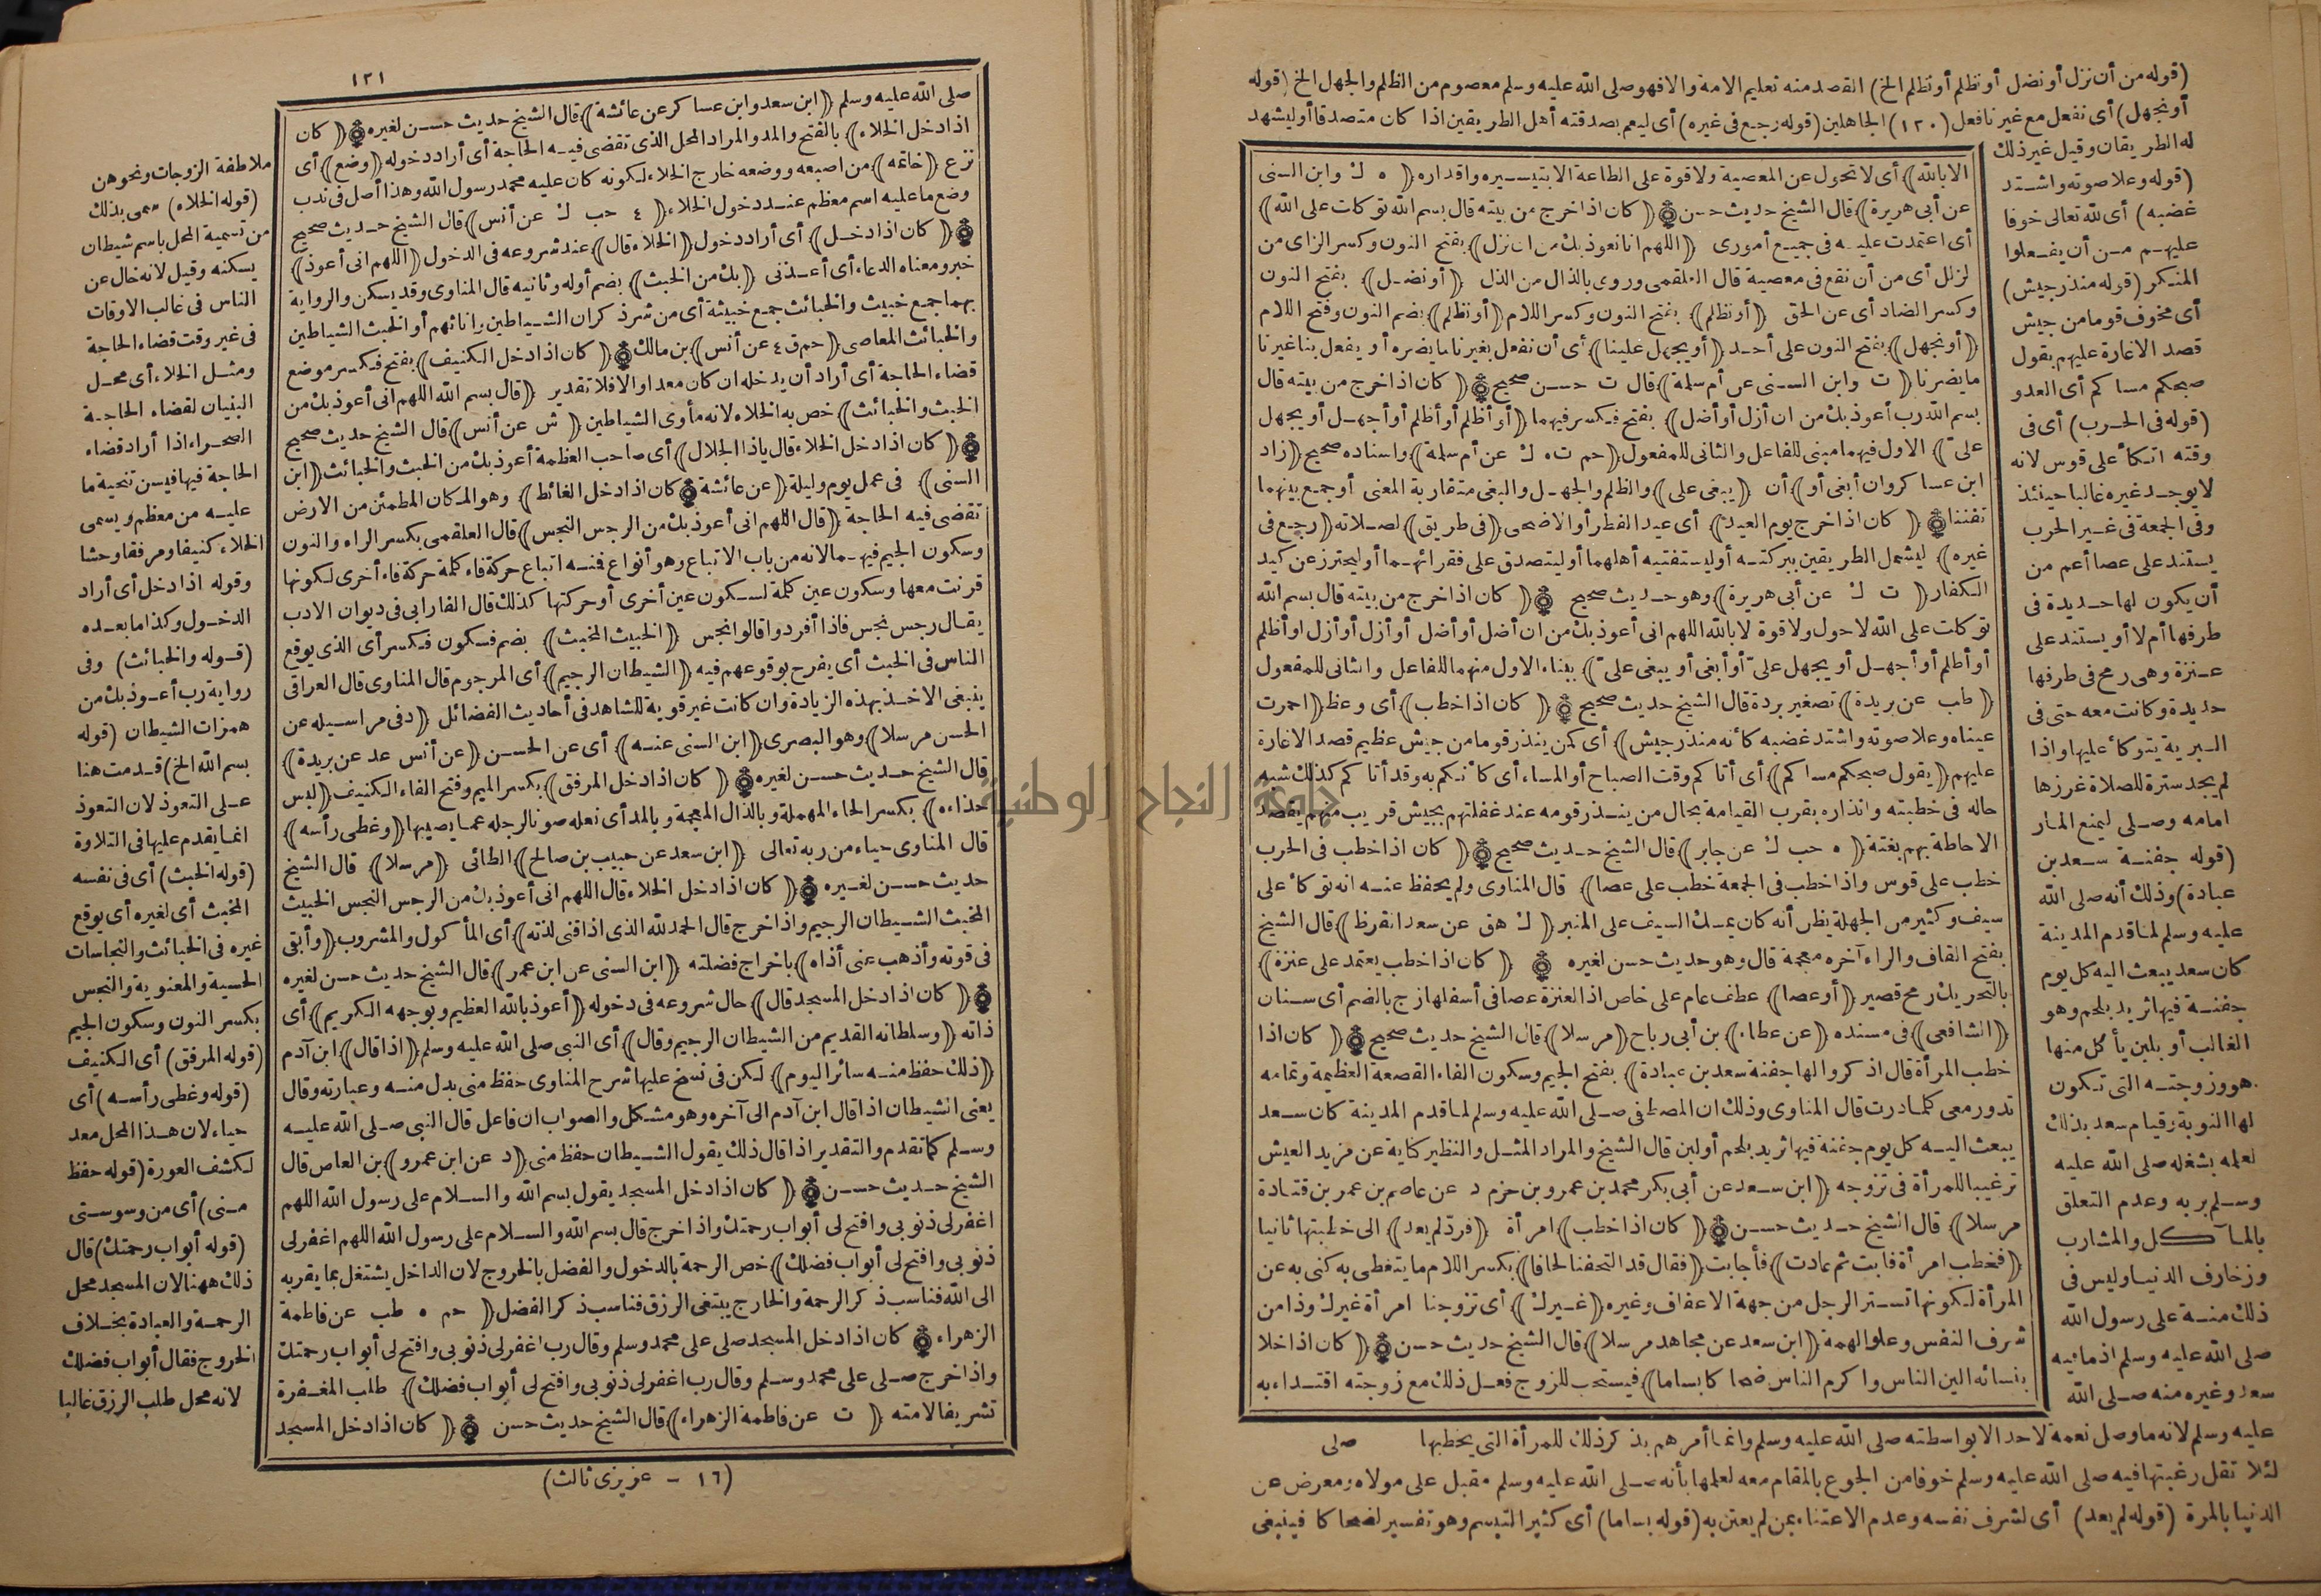 (قوله من أن نزل أو نضل أو نظلم أو نظلم الخ) القصد منه تعليم الامة والا فهو صلى الله عليه وسلم معصوم من الظلم والجهل الخ (قوله
أو نجهل) أى نفعل مع غيرنا فعل (١٢٠) الجاهلين (قوله رجع فى غيره) أى ليعم بصدقته أهل الطريقين اذا كان متصدقا أو ليشهد
له الطريقان وقيل غير ذلك
(قوله وعلا صوته واشتد
غضبه) أى لله تعالى خوفا
عليهم من أن يفعلوا
المنكر (قوله منذر جيش)
أى مخوف قوما من جيش
قصد الاغارة عليهم بقول
صبحكم مساكم أى العدو
(قوله فى الحرب) أى فى
وقته اتكأ على قوس لانه
لا يوجد غيره غالبا حينئذ
وفى الجمعة فى غير الحرب
يستند على عصا أعم من
أن يكون لها حديدة فى
طرفها أم لا أو يستند على
عنزة وهى رمح فى طرفها
حديدة وكانت معه حتى فى
البرية يتوكأ عليها واذا
لم يجد سترة للصلاة غرزها
امامه وصلى ليمنع المار
(قوله جفنة سعد بن
عبادة) وذلك أنه صلى الله
عليه وسلم لما قدم المدينة
كان سعد يبعث اليه كل يوم
جفنة فيها ثريد بلحم وهو
الغالب أو بلبن يأكل منها
هو وزوجته التى تكون
لها النوبة وقيام سعد بذلك
لعلمه بشغله صلى الله عليه
وسلم بربه وعدم التعلق
بالمآكل والمشارب
وزخارف الدنيا وليس فى
ذلك منة على رسول الله
صلى الله عليه وسلم اذ مانيه
سعد وغيره منه صلى الله
الا بالله) أى لا تحول عن المعصية ولا قوة على الطاعة الا بتيسيره واقداره (ه ك وابن السنى
عن أبى هريرة) قال الشيخ حديث حسن (كان اذا خرج من بيته قال بسم الله توكلت على الله)
أى اعتمدت عليه فى جميع أمورى (اللهم انا نعوذ بك من ان نزل) بفتح النون وكسر الزاى من
لزلل أى من أن نقع فى معصية قال العلقمى وروى بالذال من الذل (أو نضل) بفتح النون
وكسر الضاد أى عن الحق (أو نظلم) بفتح النون وكسر اللام (أو نظلم) بضم النون وفتح اللام
(أو نجهل) بفتح النون على أحد (أو يجهل علينا) أى أن نفعل بغيرنا ما يضره أو يفعل بنا غيرنا
ما يضرنا (ت وابن السنى عن أم سلمة) قال ت حسن صحيح (كان اذا خرج من بيته قال
بسم الله رب أعوذ بك من ان أزل أو أضل) بفتح فكسر فيهما (أو أظلم أو أظلم أو أجهل أو يجهل
علىّ) الاول فيهما مبنى للفاعل والثانى للمفعول (حم ت ه ك عن أم سلمة) واسناده صحيح (زاد
ابن عساكر وان أبغى أو) أن (يبغى على) والظلم والجهل والبغى متقاربة المعنى أو جمع بينهما
تفننا (كان اذا خرج يوم العيد) أى عيد الفطر أو الاضحى (فى طريق) لصلاته (رجع فى
غيره) ليشمل الطريقين ببركته أو ليستفتيه أهلهما أو ليتصدق على فقرائهما أو ليحترز عن كيد
الكفار (ت ك عن أبى هريرة) وهو حديث صحيح (كان اذا خرج من بيته قال بسم الله
توكلت على الله لا حول ولا قوة لا بالله اللهم انى أعوذ بك من ان أضل أو أضل أو أزل أو أزل او أظلم
أو أظلم أو أجهل أو يجهل علىّ أو أبغى أو يبغى علىّ) ببناء الاول منهما للفاعل والثانى للمفعول
(طب عن بريدة) تصغير بردة قال الشيخ حديث صحيح (كان اذا خطب) أى وعظ (احمرت
عيناه وعلا صوته واشتد غضبه كأنه منذر جيش) أى كمن ينذر قوما من جيش عظيم قصد الاغارة
عليهم (يقول صبحكم مساكم) أى أتاكم وقت الصباح أو المساء أى كأنكم به وقد أتاكم كذلك شبه
حاله فى خطبته وانذاره بقرب القيامة بحال من ينذر قومه عند غفلتهم بجيش قريب منهم يقصد
الاحاطة بهم بغتة (ه حب ك عن جابر) قال الشيخ حديث صحيح (كان اذا خطب فى الحرب
خطب على قوس واذا خطب فى الجمعة خطب على عصا) قال المناوى ولم يحفظ عنه انه توكأ على
سيف وكثير من الجهلة يظن أنه كان يمسك السيف على المنبر (ك هق عن سعد القرظ) قال الشيخ
بفتح القاف والراء آخره معجمة قال وهو حديث حسن لغيره (كان اذا خطب يعتمد على عنزة)
بالتحريك رمح قصير (أو عصا) عطف عام على خاص اذ العنزة عصا فى أسفلها زج بالضم أى سنان
(الشافعى) فى مسنده (عن عطاء) بن أبى رباح (مرسلا) قال الشيخ حديث صحيح (كان اذا
خطب المرأة قال اذكروا لها جفنة سعد بن عبادة) بفتح الجيم وسكون الفاء القصعة العظيمة وتمامه
تدور معى كلما درت قال المناوى وذلك ان المصطفى صلى الله عليه وسلم لما قدم المدينة كان سعد
يبعث اليه كل يوم جفنة فيها ثريد بلحم أو لبن قال الشيخ والمراد المثل والنظير كناية عن مزيد العيش
ترغيبا للمرأة فى تزوجه (ابن سعد عن أبى بكر محمد بن عمرو بن حزم د عن عاصم بن عمر بن قتادة
مرسلا) قال الشيخ حديث حسن (كان اذا خطب) امرأة (فردّ لم يعد) الى خطبتها ثانيا
(فخطب امرأة فابت ثم عادت) فأجابت (فقال قد التحفنا لحافا) بكسر اللام ما يتغطى به كنى به عن
المرأة لكونها تستر الرجل من جهة الاعفاف وغيره (غيرك) أى تزوجنا امرأة غيرك وذا من
شرف النفس وعلو الهمة (ابن سعد عن مجاهد مرسلا) قال الشيخ حديث حسن (كان اذا خلا
بنسائه الين الناس واكرم الناس ضحاكا بساما) فيستحب للزوج فعل ذلك مع زوجته اقتداء به
عليه وسلم لانه ما وصل نعمة لاحد الا بواسطته صلى الله عليه وسلم وانما أمرهم بذكر ذلك للمرأة التى يخطبها صلى
لئلا تقل رغبتها فيه صلى الله عليه وسلم خوفا من الجوع بالمقام معه لعلمها بأنه صلى الله عليه وسلم مقبل على مولاه ومعرض عن
الدنيا بالمرة (قوله لم يعد) أى لشرف نفسه وعدم الاعتناء بمن لم يعتن به (قوله بساما) أى كثير التبسم وهو تفسير لضحاكا فينبغى
١٢١
صلى الله عليه وسلم (ابن سعد وابن عساكر عن عائشة) قال الشيخ حديث حسن لغيره (كان
اذا دخل الخلاء) بالفتح والمد والمراد المحل الذى تقضى فيه الحاجة أى أراد دخوله (وضع) أى
نزع (خاتمه) من اصبعه ووضعه خارج الخلاء لكونه كان عليه محمد رسول الله وهذا أصل فى ندب
وضع ما عليه اسم معظم عند دخول الخلاء (٤ حب ك عن أنس) قال الشيخ حديث صحيح
(كان اذا دخل) أى أراد دخول (الخلاء قال) عند شروعه فى الدخول (اللهم انى أعوذ)
خبر ومعناه الدعاء أى أعذنى (بك من الخبث) بضم أوله وثانيه قال المناوى وقد يسكن والرواية
بهما جمع خبيث والخبائث جمع خبيثة أى من شر ذكران الشياطين واناثهم أو الخبث الشياطين
والخبائث المعاصى (حم ق ٤ عن أنس) بن مالك (كان اذا دخل الكنيف) بفتح فكسر موضع
قضاء الحاجة أى أراد أن يدخله ان كان معدا والا فلا تقدير (قال بسم الله اللهم انى أعوذ بك من
الخبث والخبائث) خص به الخلاء لانه مأوى الشياطين (ش عن أنس) قال الشيخ حديث صحيح
(كان اذا دخل الخلاء قال ياذا الجلال) أى صاحب العظمة أعوذ بك من الخبث والخبائث (ابن
السنى) فى عمل يوم وليلة (عن عائشة كان اذا دخل الغائط) وهو المكان المطمئن من الارض
تقضى فيه الحاجة (قال اللهم انى أعوذ بك من الرجس النجس) قال العلقمى بكسر الراء والنون
وسكون الجيم فيهما لانه من باب الاتباع وهو أنواع فمنه اتباع حركة فاء كلمة حركة فاء أخرى لكونها
قرنت معها وسكون عين كلمة لسكون عين أخرى أو حركتها كذلك قال الفارابى فى ديوان الادب
يقال رجس نجس فاذا أفردوا قالوا نجس (الخبيث المخبث) بضم فسكون فكسر أى الذى يوقع
الناس فى الخبث أى يفرح بوقوعهم فيه (الشيطان الرجيم) أى المرجوم قال المناوى قال العراقى
ينبغى الاخذ بهذه الزيادة وان كانت غير قوية للشاهد فى أحاديث الفضائل (د فى مراسيله عن
الحسن مرسلا) وهو البصرى (ابن السنى عنه) أى عن الحسن (عن أنس عد عن بريدة)
قال الشيخ حديث حسن لغيره (كان اذا دخل المرفق) بكسر الميم وفتح الفاء الكنيف (لبس
حذاءه) بكسر الحاء المهملة وبالذال المعجمة وبالمد أى نعله صونا لرجله عما يصيبها (وغطى رأسه)
قال المناوى حياء من ربه تعالى (ابن سعد عن حبيب بن صالح) الطائى (مرسلا) قال الشيخ
حديث حسن لغيره (كان اذا دخل الخلاء قال اللهم انى أعوذ بك من الرجس النجس الخبيث
المخبث الشيطان الرجيم واذا خرج قال الحمد لله الذى اذاقنى لذته) أى المأكول والمشروب (وأبقى
فى قوته وأذهب عنى أذاه) باخراج فضلته (ابن السنى عن ابن عمر) قال الشيخ حديث حسن لغيره
(كان اذا دخل المسجد قال) حال شروعه فى دخوله (أعوذ بالله العظيم وبوجهه الكريم) أى
ذاته (وسلطانه القديم من الشيطان الرجيم وقال) أى النبى صلى الله عليه وسلم (اذا قال) ابن آدم
(ذلك حفظ منه سائر اليوم) لكن فى نسخ عليها شرح المناوى حفظ منى بدل منه وعبارته وقال
يعنى الشيطان اذا قال ابن آدم الى آخره وهو مشكل والصواب ان فاعل قال النبى صلى الله عليه
وسلم كما تقدم والتقدير اذا قال ذلك يقول الشيطان حفظ منى (د عن ابن عمرو) بن العاص قال
الشيخ حديث حسن (كان اذا دخل المسجد يقول بسم الله والسلام على رسول الله اللهم
اغفر لى ذنوبى وافتح لى أبواب رحمتك واذا خرج قال بسم الله والسلام على رسول الله اللهم اغفر لى
ذنوبى وافتح لى أبواب فضلك) خص الرحمة بالدخول والفضل بالخروج لان الداخل يشتغل بما يقربه
الى الله فناسب ذكر الرحمة والخارج يبتغى الرزق فناسب ذكر الفضل (حم ه طب عن فاطمة
الزهراء كان اذا دخل المسجد صلى على محمد وسلم وقال رب اغفر لى ذنوبى وافتح لى أبواب رحمتك
واذا خرج صلى على محمد وسلم وقال رب اغفر لى ذنوبى وافتح لى أبواب فضلك) طلب المغفرة
تشريفا لامته (ت عن فاطمة الزهراء) قال الشيخ حديث حسن (كان اذا دخل المسجد
ملاطفة الزوجات ونحوهن
(قوله الخلاء) سمى بذلك
من تسمية المحل باسم شيطان
يسكنه وقيل لانه خال عن
الناس فى غالب الاوقات
فى غير وقت قضاء الحاجة
ومثل الخلاء أى محل
البنيان لقضاء الحاجة
الصحراء اذا أراد قضاء
الحاجة فيها فيسن تنحية ما
عليه من معظم ويسمى
الخلاء كنيفا ومرفقا وحشا
وقوله اذا دخل أى أراد
الدخول وكذا ما بعده
(قوله والخبائث) وفى
رواية رب أعوذ بك من
همزات الشيطان (قوله
بسم الله الخ) قدمت هنا
على التعوذ لان التعوذ
انما يقدم عليها فى التلاوة
(قوله الخبث) أى فى نفسه
المخبث أى لغيره أى يوقع
غيره فى الخبائث والنجاسات
الحسية والمعنوية والنجس
بكسر النون وسكون الجيم
(قوله المرفق) أى الكنيف
(قوله وغطى رأسه) أى
حياء لان هذا المحل معد
لكشف العورة (قوله حفظ
منى) أى من وسوستى
(قوله أبواب رحمتك) قال
ذلك ههنا لان المسجد محل
الرحمة والعبادة بخلاف
الخروج فقال أبواب فضلك
لانه محل طلب الرزق غالبا
(١٦ - عزيزى ثالث)
جامعة النجاح الوطنية